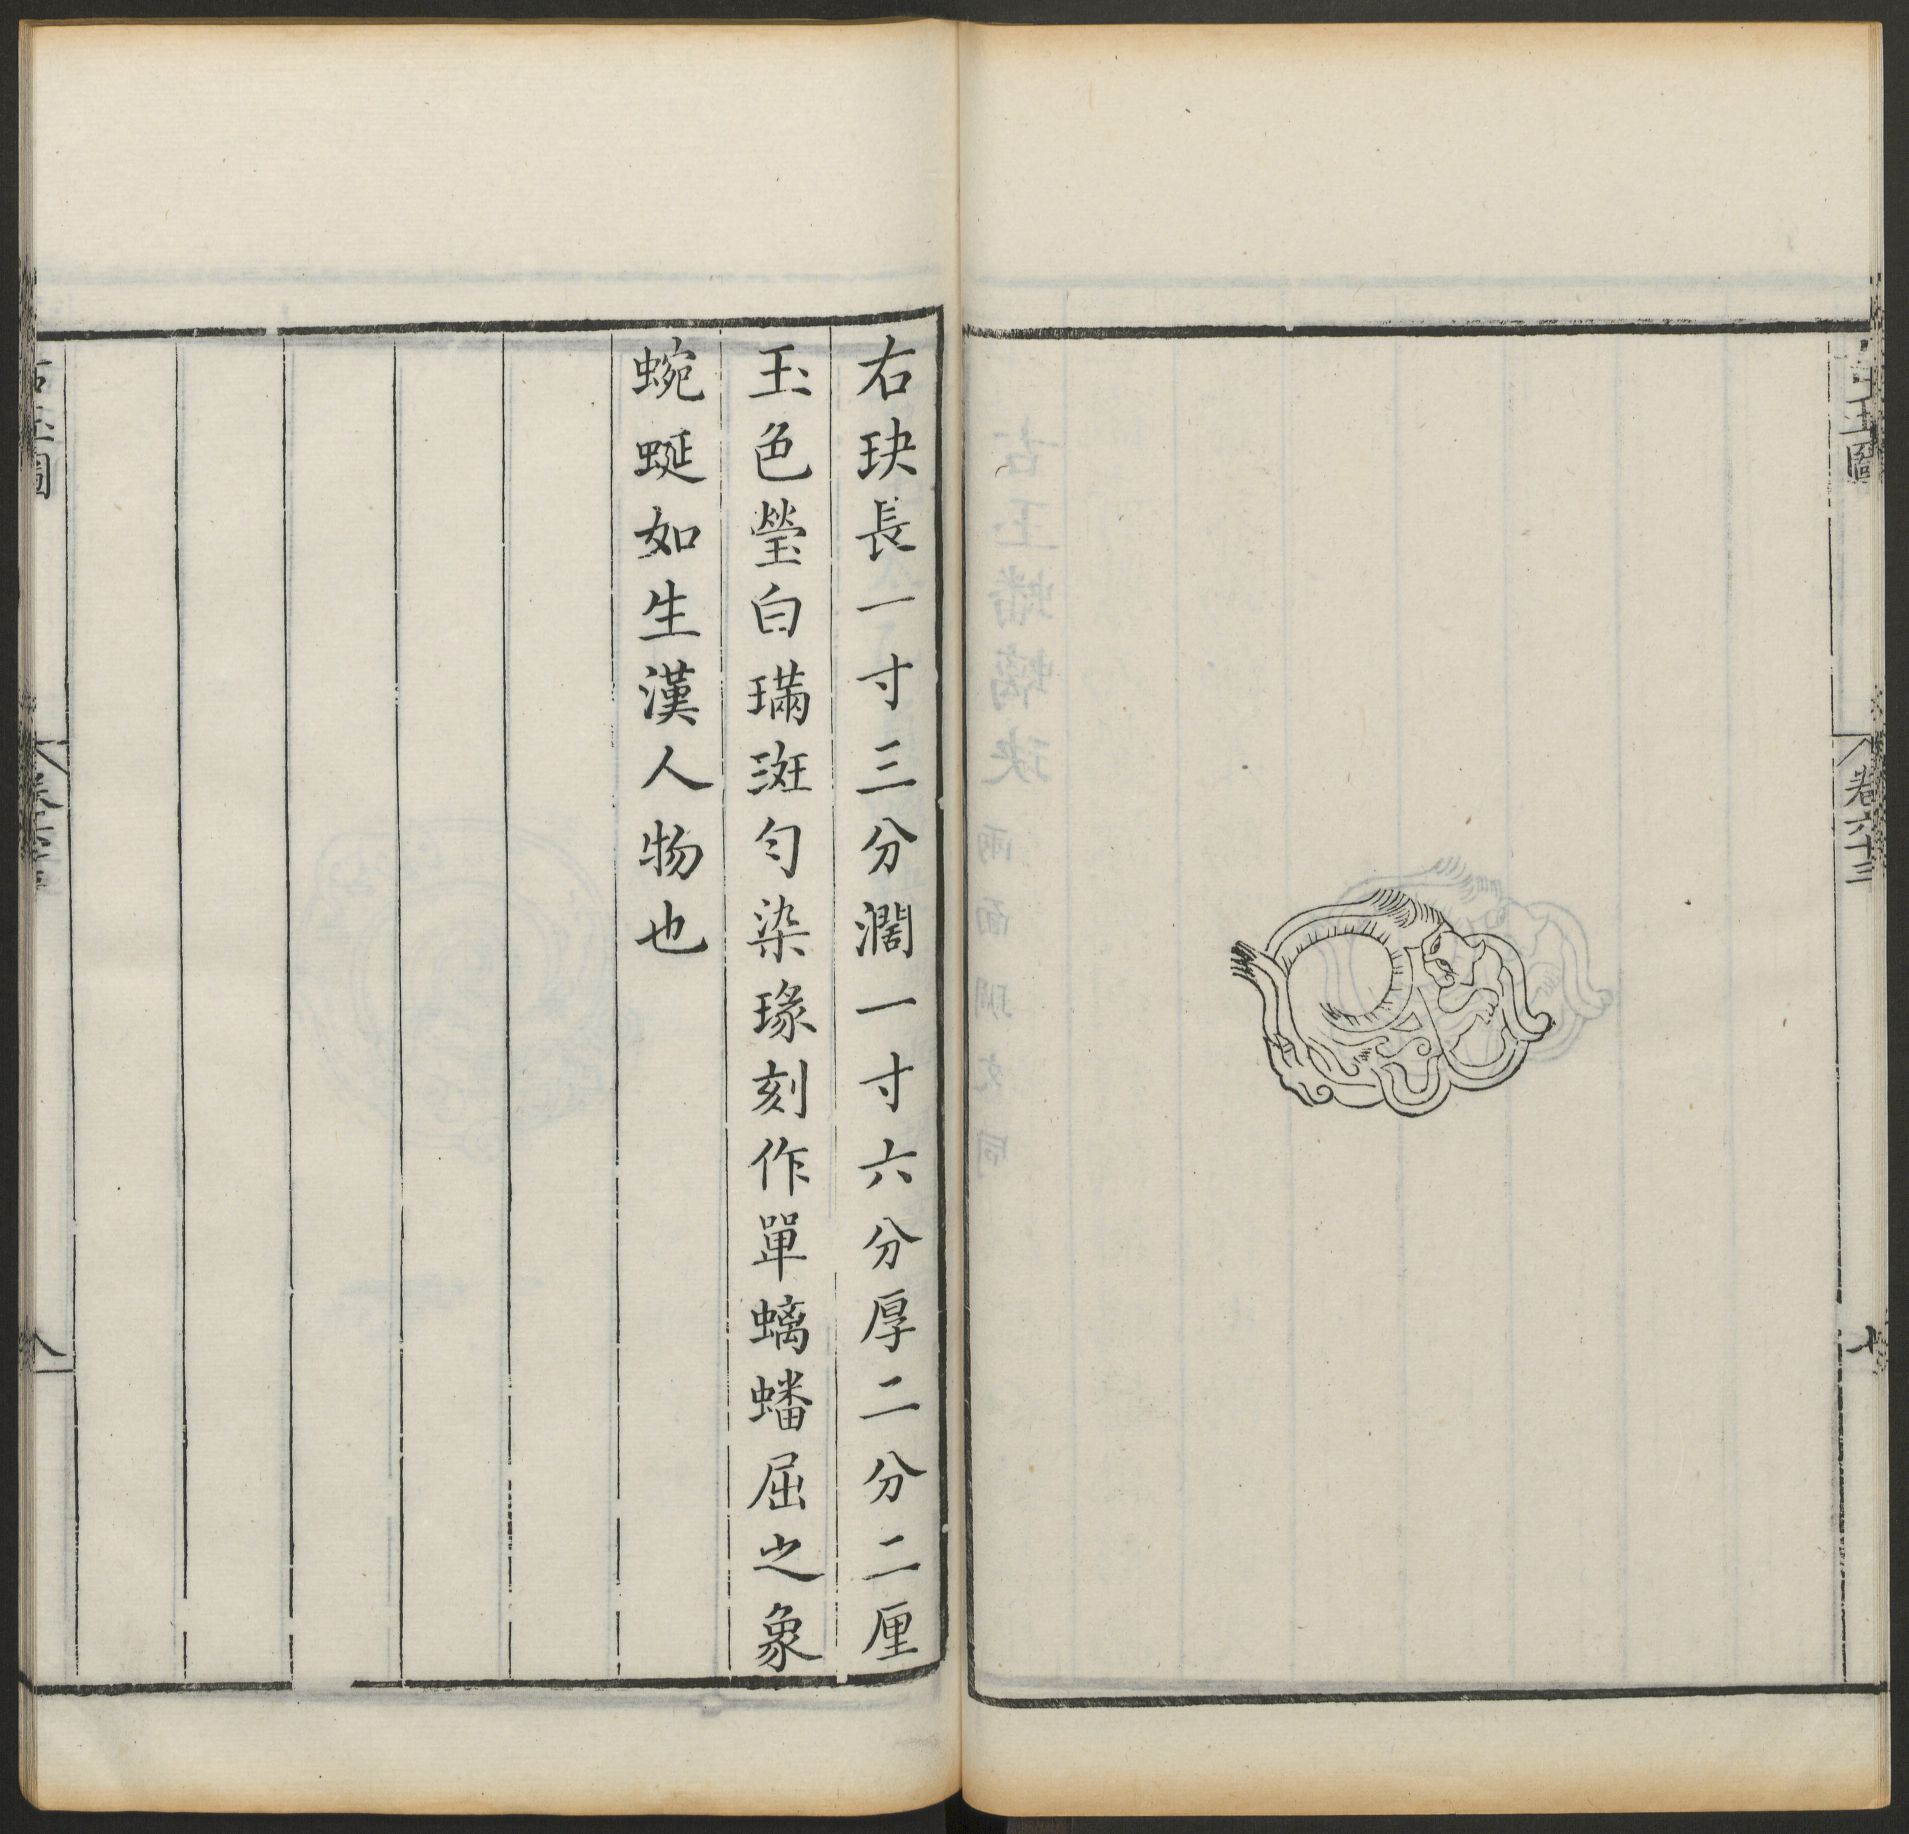 古玉圖
卷六十三
七
右玦長一寸三分濶一寸六分厚二分二厘
玉色瑩白璊斑勻染瑑刻作單螭蟠屈之象
蜿蜒如生漢人物也
八